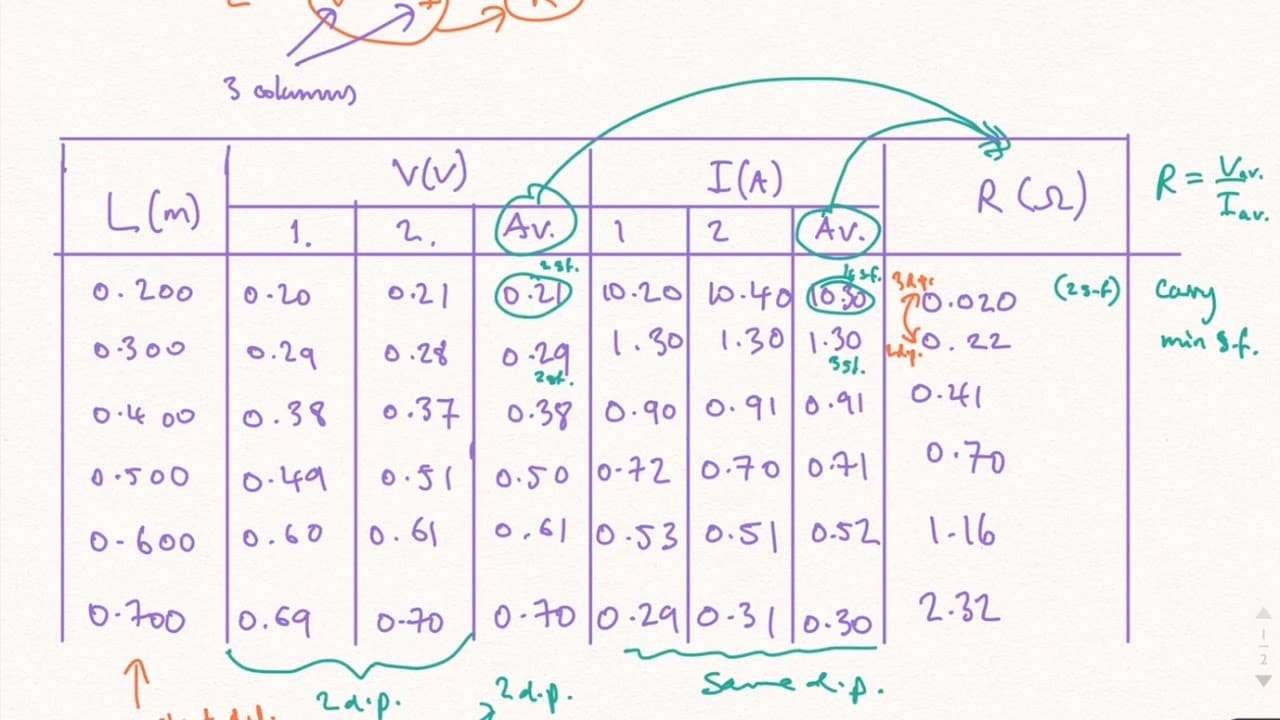 3 columns
L (m) V(V) I(A) R (Ω) R = Vav. / Iav.
1. 2. Av. 1 2 Av.
2sf. 4sf. 3d.p.
0.200 0.20 0.21 0.21 10.20 10.40 10.30 0.020 (2s.f) carry
0.300 0.29 0.28 0.29 1.30 1.30 1.30 2d.p. 0.22 min s.f.
2sf. 3sf.
0.400 0.38 0.37 0.38 0.90 0.91 0.91 0.41
0.500 0.49 0.51 0.50 0.72 0.70 0.71 0.70
0.600 0.60 0.61 0.61 0.53 0.51 0.52 1.16
0.700 0.69 0.70 0.70 0.29 0.31 0.30 2.32
2d.p. 2d.p. Same d.p.
1
2